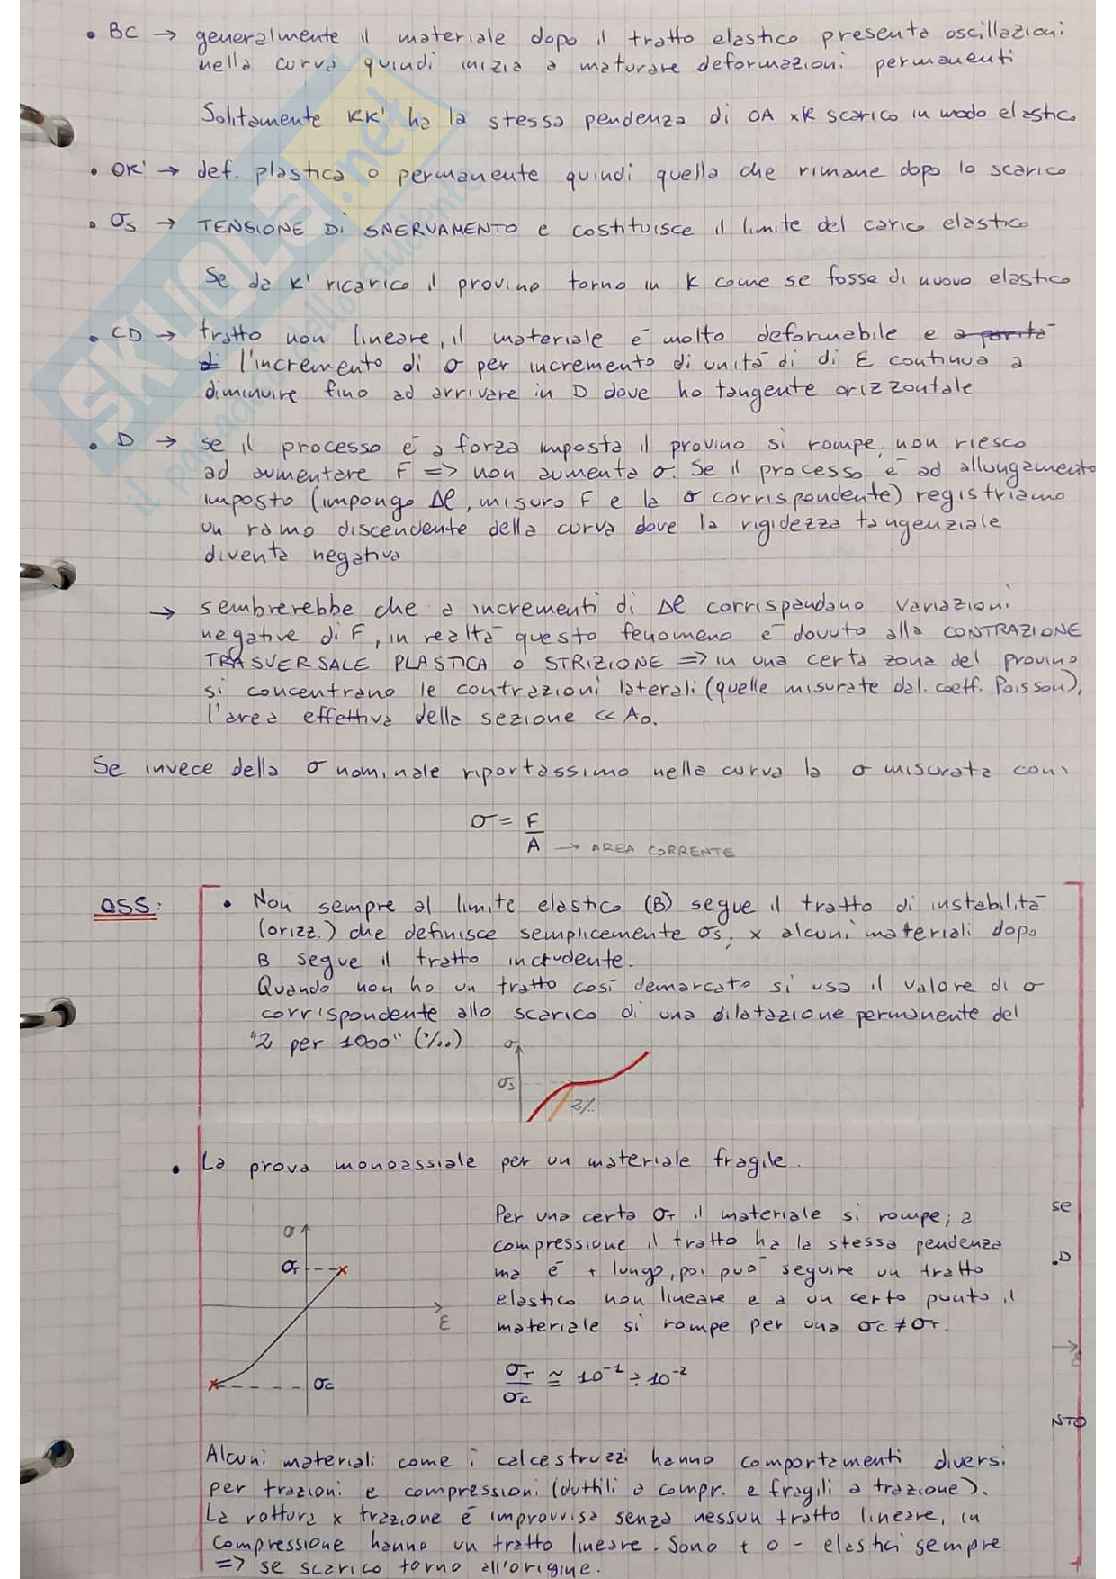 • BC → generalmente il materiale dopo il tratto elastico presenta oscillazioni
nella curva quindi inizia a maturare deformazioni permanenti
Solitamente KK' ha la stessa pendenza di OA xk scarico in modo elastico
• OK' → def. plastica o permanente quindi quella che rimane dopo lo scarico
• σs → TENSIONE DI SNERVAMENTO e costituisce il limite del carico elastico
Se da K' ricarico il provino torno in K come se fosse di nuovo elastico
• CD → tratto non lineare, il materiale è molto deformabile e a parità
di l'incremento di σ per incremento di unità di di ε continua a
diminuire fino ad arrivare in D dove ho tangente orizzontale
• D → se il processo è a forza imposta il provino si rompe, non riesco
ad aumentare F => non aumenta σ. Se il processo è ad allungamento
imposto (impongo Δl, misuro F e la σ corrispondente) registriamo
un ramo discendente della curva dove la rigidezza tangenziale
diventa negativa
→ sembrerebbe che a incrementi di Δl corrispondano variazioni
negative di F, in realtà questo fenomeno è dovuto alla CONTRAZIONE
TRASVERSALE PLASTICA o STRIZIONE => in una certa zona del provino
si concentrano le contrazioni laterali (quelle misurate dal coeff. Poisson),
l'area effettiva della sezione << A₀.
Se invece della σ nominale riportassimo nella curva la σ misurata con:
σ = F
A → AREA CORRENTE
OSS:
• Non sempre al limite elastico (B) segue il tratto di instabilità
(orizz.) che definisce semplicemente σs, x alcuni materiali dopo
B segue il tratto incrudente.
Quando non ho un tratto così demarcato si usa il valore di σ
corrispondente allo scarico di una dilatazione permanente del
"2 per 1000" (‰)
σ
σs
2‰
• La prova monoassiale per un materiale fragile.
Per una certa σT il materiale si rompe; a
compressione il tratto ha la stessa pendenza
ma è + lungo, poi può seguire un tratto
elastico non lineare e a un certo punto il
materiale si rompe per una σc ≠ σT.
σT/σc ≅ 10⁻¹ ÷ 10⁻²
σ
σT
ε
σc
se
.D
→
NTO
Alcuni materiali come i calcestruzzi hanno comportamenti diversi
per trazioni e compressioni (duttili a compr. e fragili a trazione).
La rottura x trazione è improvvisa senza nessun tratto lineare, in
compressione hanno un tratto lineare. Sono + o - elastici sempre
=> se scarico torno all'origine.
SKUOLA.net